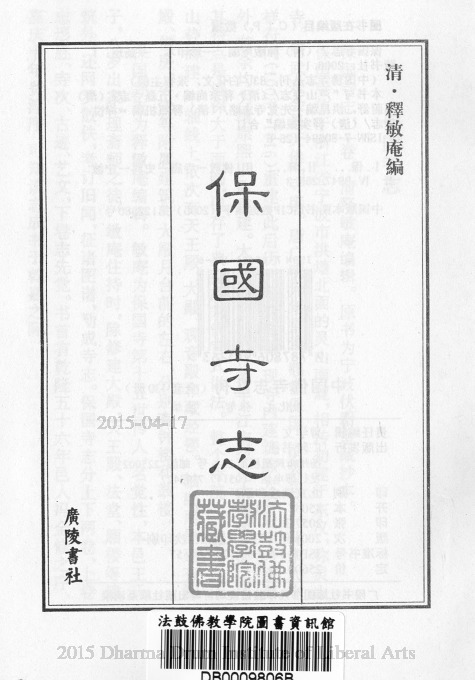 清·釋敏庵編
保國寺志
2015-04-17
廣陵書社
法鼓佛
教學院
藏書
法鼓佛教學院圖書資訊館
2015 Dharma Drum Institute of Liberal Arts
DB0009806B